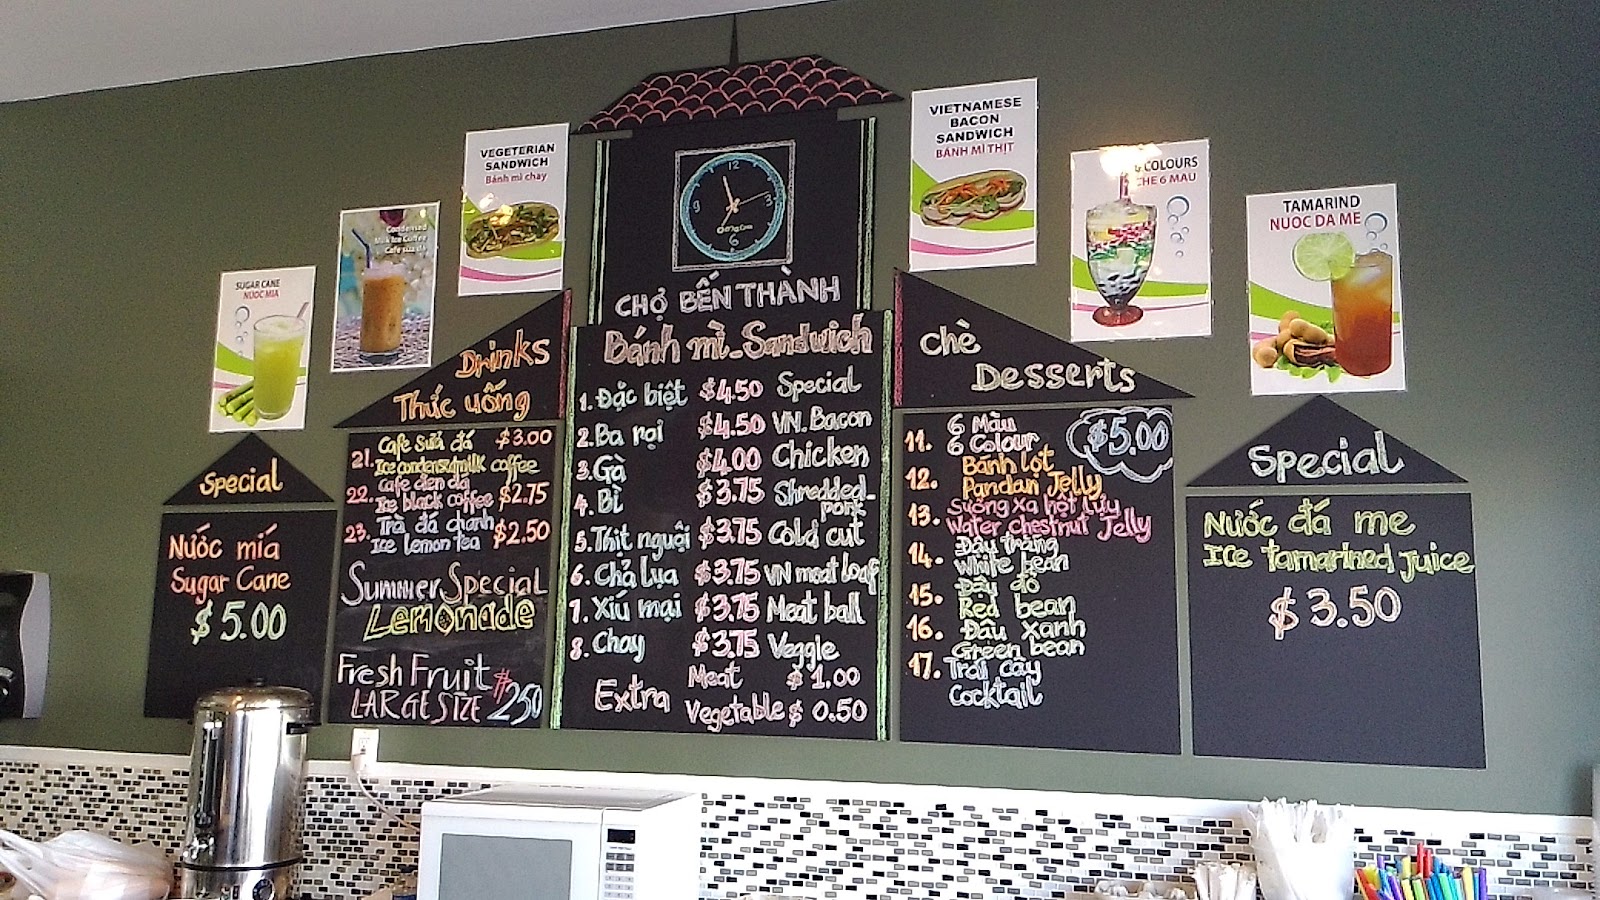 SUGAR CANE
NUOC MIA
Condensed
Milk Ice Coffee
Cafe sua da
VEGETERIAN
SANDWICH
Bánh mì chay
VIETNAMESE
BACON
SANDWICH
BÁNH MÌ THỊT
COLOURS
CHE 6 MAU
TAMARIND
NUOC DA ME
12
3
6
9
CHỢ BẾN THÀNH
Special
Nước mía
Sugar Cane
$5.00
Drinks
Thức uống
21. Cafe sữa đá $3.00
Ice condensed milk coffee
22. Cafe đen đá
Ice black coffee $2.75
23. Trà đá chanh $2.50
Ice lemon tea
Summer Special
Lemonade
Fresh Fruit
LARGE SIZE $250
Bánh mì - Sandwich
1. Đặc biệt $4.50 Special
2. Ba rọi $4.50 VN. Bacon
3. Gà $4.00 Chicken
4. Bì $3.75 Shredded-
pork
5. Thịt nguội $3.75 Cold cut
6. Chả lụa $3.75 VN meat loaf
7. Xíu mại $3.75 Meat ball
8. Chay $3.75 Veggie
Extra Meat $1.00
Vegetable $0.50
Chè
Desserts
11. 6 Màu $5.00
6 Colour
12. Bánh lọt
Pandan Jelly
13. Sương xa hột lựu
Water chestnut Jelly
14. Đậu trắng
White bean
15. Đậu đỏ
Red bean
16. Đậu xanh
Green bean
17. Trái cây
Cocktail
Special
Nước đá me
Ice tamarined juice
$3.50